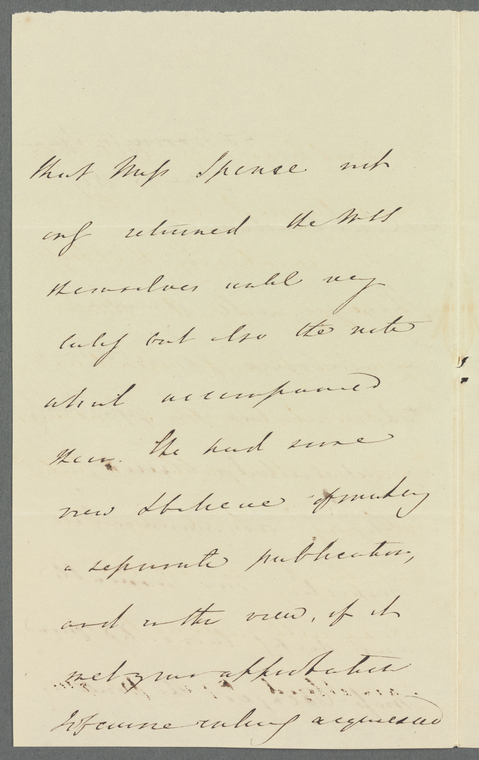 that Miss Spense not
only returned the MSS
themselves until very
lately but also the note
which accompanied
them. She had some
view I believe of making
a separate publication,
and in the view, if it
met your approbation
I of course entirely acquiesced